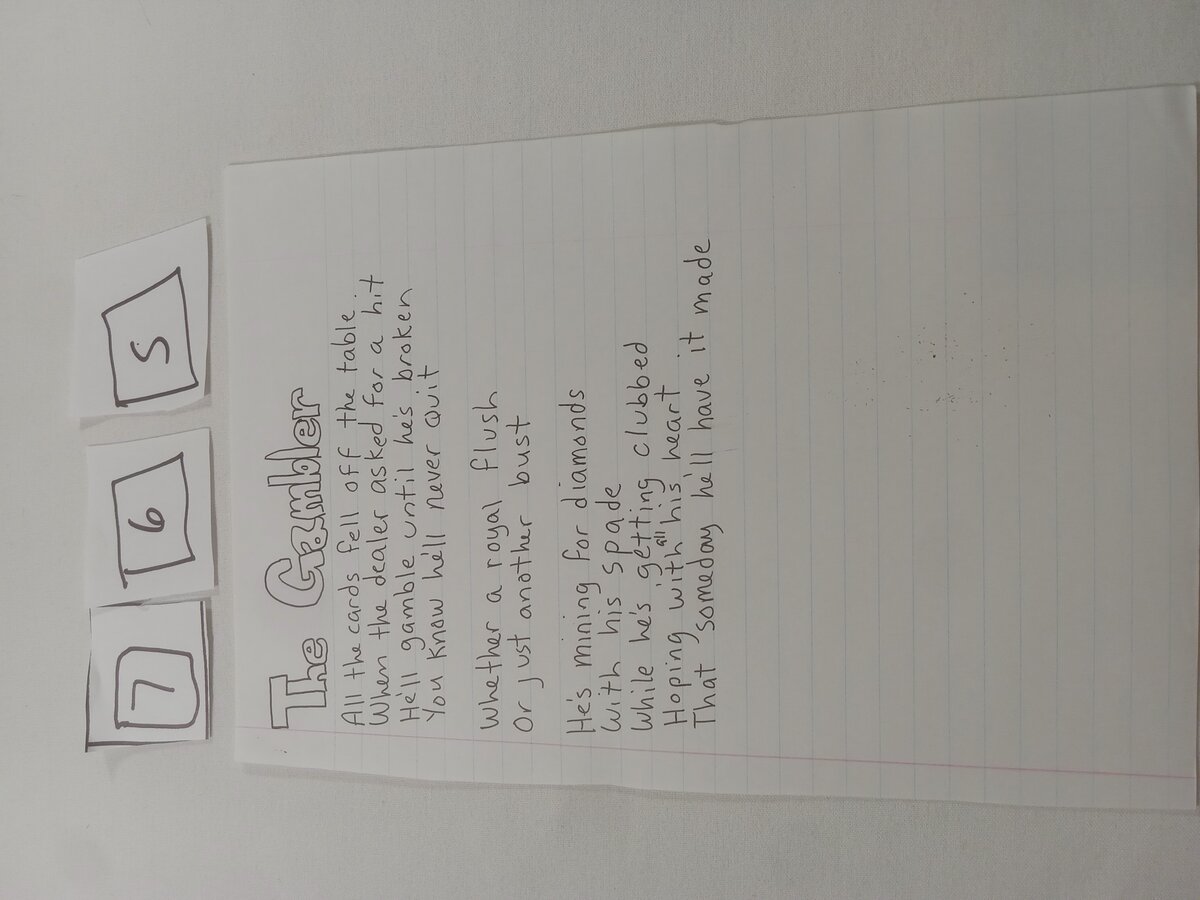 7 6 5
The Gambler
All the cards fell off the table
When the dealer asked for a hit
He'll gamble until he's broken
You know he'll never quit
Whether a royal flush
Or just another bust
He's mining for diamonds
With his spade
While he's getting clubbed
Hoping with all his heart
That someday he'll have it made